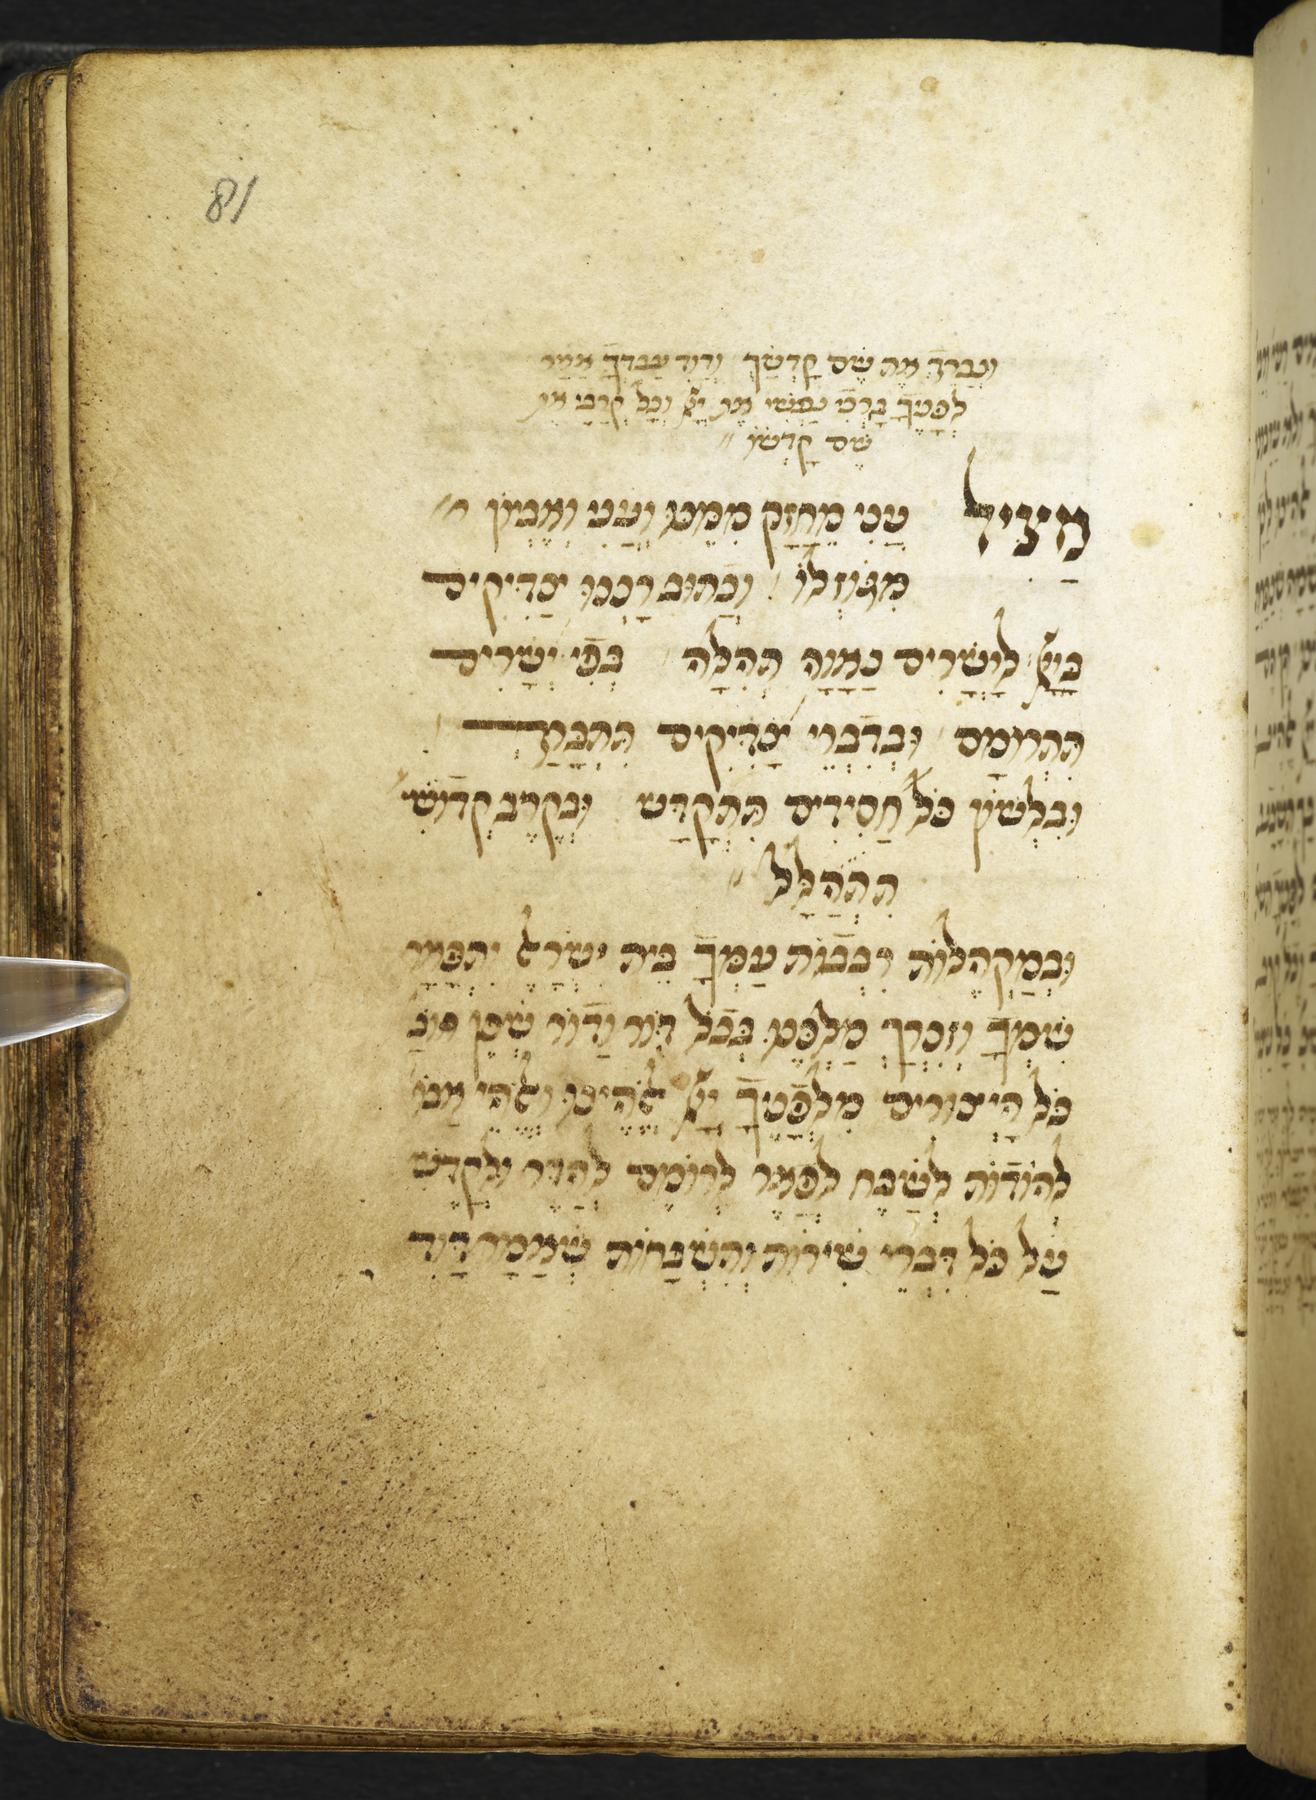 81
ונברך את שם קדשך ודוד עבדך אמר
לפניך ברכי נפשי את יי וכל קרבי את
שם קדשו
מציל עני מחזק ממנו ועני ואביון
מגוזלו וכתוב רננו צדיקים
ביי לישרים נאוה תהלה בפי ישרים
תתרומם ובדברי צדיקים תתברך
ובלשון כל חסידים תתקדש ובקרב קדושי
תתהלל
ובמקהלות רבבות עמך בית ישראל יתפאר
שמך וזכרך מלכנו בכל דור ודור שכן חובַ
כל היצורים מלפניך יי אלהינו ואלהי אבו
להודות לשבח לפאר לרומם להדר ולקדש
על כל דברי שירות ותשבחות שאמר דויד